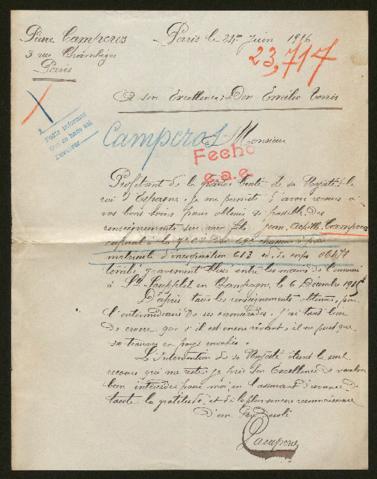 Pierre Camperos
3 rue
Paris
Paris le 24 Juin 1916
23,714
A son Excellence Don Emilio Torres
Camperos
Monsieur
Fecho
Profitant de la grande bonté de sa Majesté le
roi d'Espagne, je me permets d'avoir recours à
vos bons soins pour obtenir si possible des
renseignements sur mon fils Jean Camperos
caporal
matricule 613 et du corps
tombé gravement blessé entre les mains de l'ennemi
à St Souplet en Champagne, le 6 Décembre 1915
D'après tous les renseignements obtenus, par
l'intermédiaire de ses camarades, j'ai tout lieu
de croire que s'il est encore vivant, il ne peut que
se trouver en pays envahis.
L'intervention de sa Majesté étant le seul
recours qui me reste, je prie Son Excellence de vouloir
bien intercéder pour moi en l'assurant d'avance de
toute la gratitude, et de la plus sincère reconnaissance
d'un
Camperos